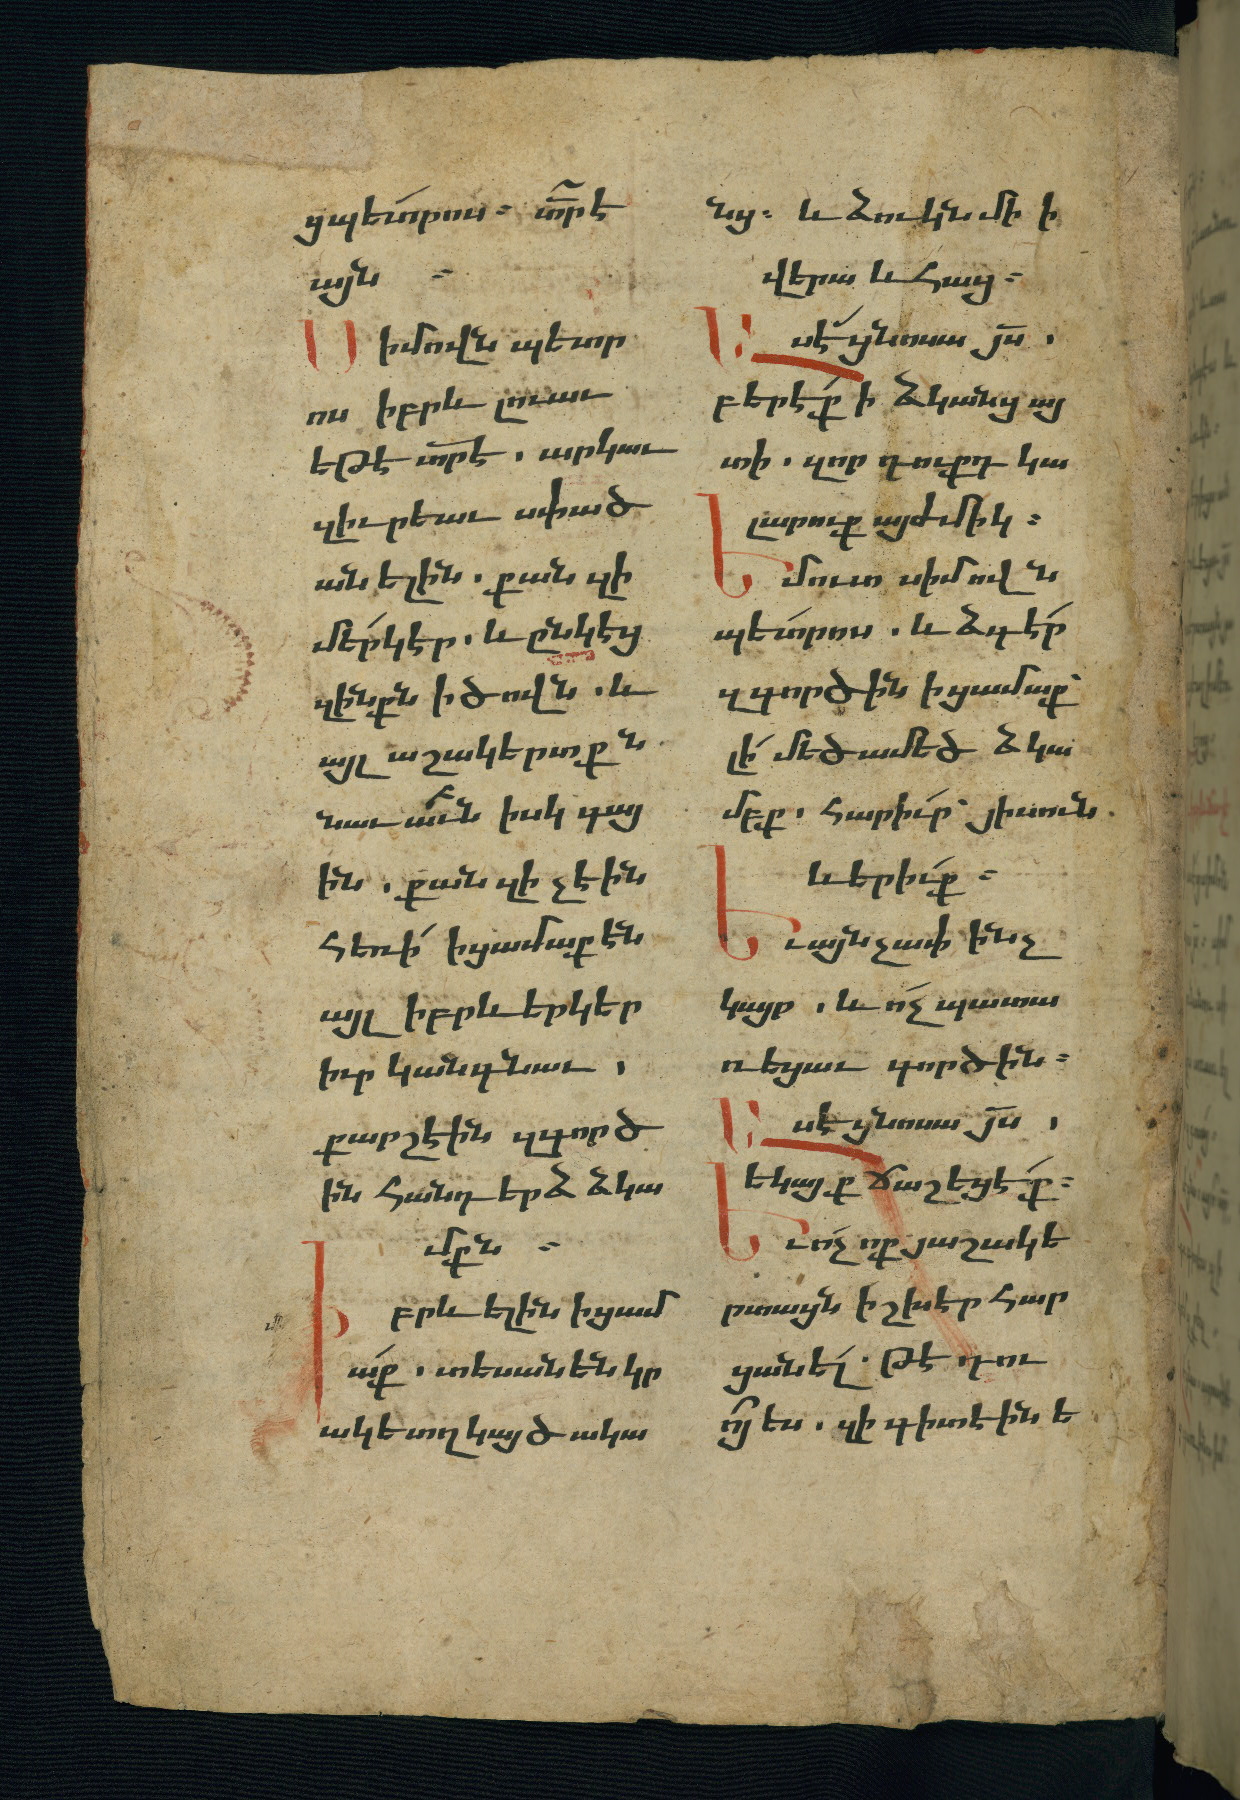 ցպետրոս։ տրէ
այն ։
Սիմովն պետր
ոս իբրև լուաւ
եթէ տրէ . արկաւ
զիւրեաւ սփած
անելին . քանզի
մերկէր . և ընկէց
զինքն ի ծովն . և
այլ աշակերտքն
նաւաւն իսկ գայ
ին . քանզի չէին
հեռի ի ցամաքէն
այլ իբրև երկեր
իւր կանգնաւ ,
քարշէին զգործ
ին հանդերձ ձկա
մբքն ։
Իբրև ելին ի ցամ
աք . տեսանեն կր
ակետղ կայծակա
նց։ և ձուկն մի ի
վերա և հաց։
Ասէ ցնոսա յս .
բերէք ի ձկանց այ
տի . զոր դուքդ կա
լարուք այժմիկ։
Եմուտ սիմովն
պետրոս . և ձգէր
զգործին ի ցամաք
լի մեծամեծ ձկա
մբք . հարիւր յիսուն
և երիւք ։
Եւ այնչափ ինչ
կայր . և ոչ պատա
ռեցաւ գործին։
Ասէ ցնոսա յս .
Եկայք ճաշեցէք։
Եւ ոչ ոք յաշակե
րտացն իշխէր հար
ցանել . թէ դու
ոյ ես . զի գիտէին ե